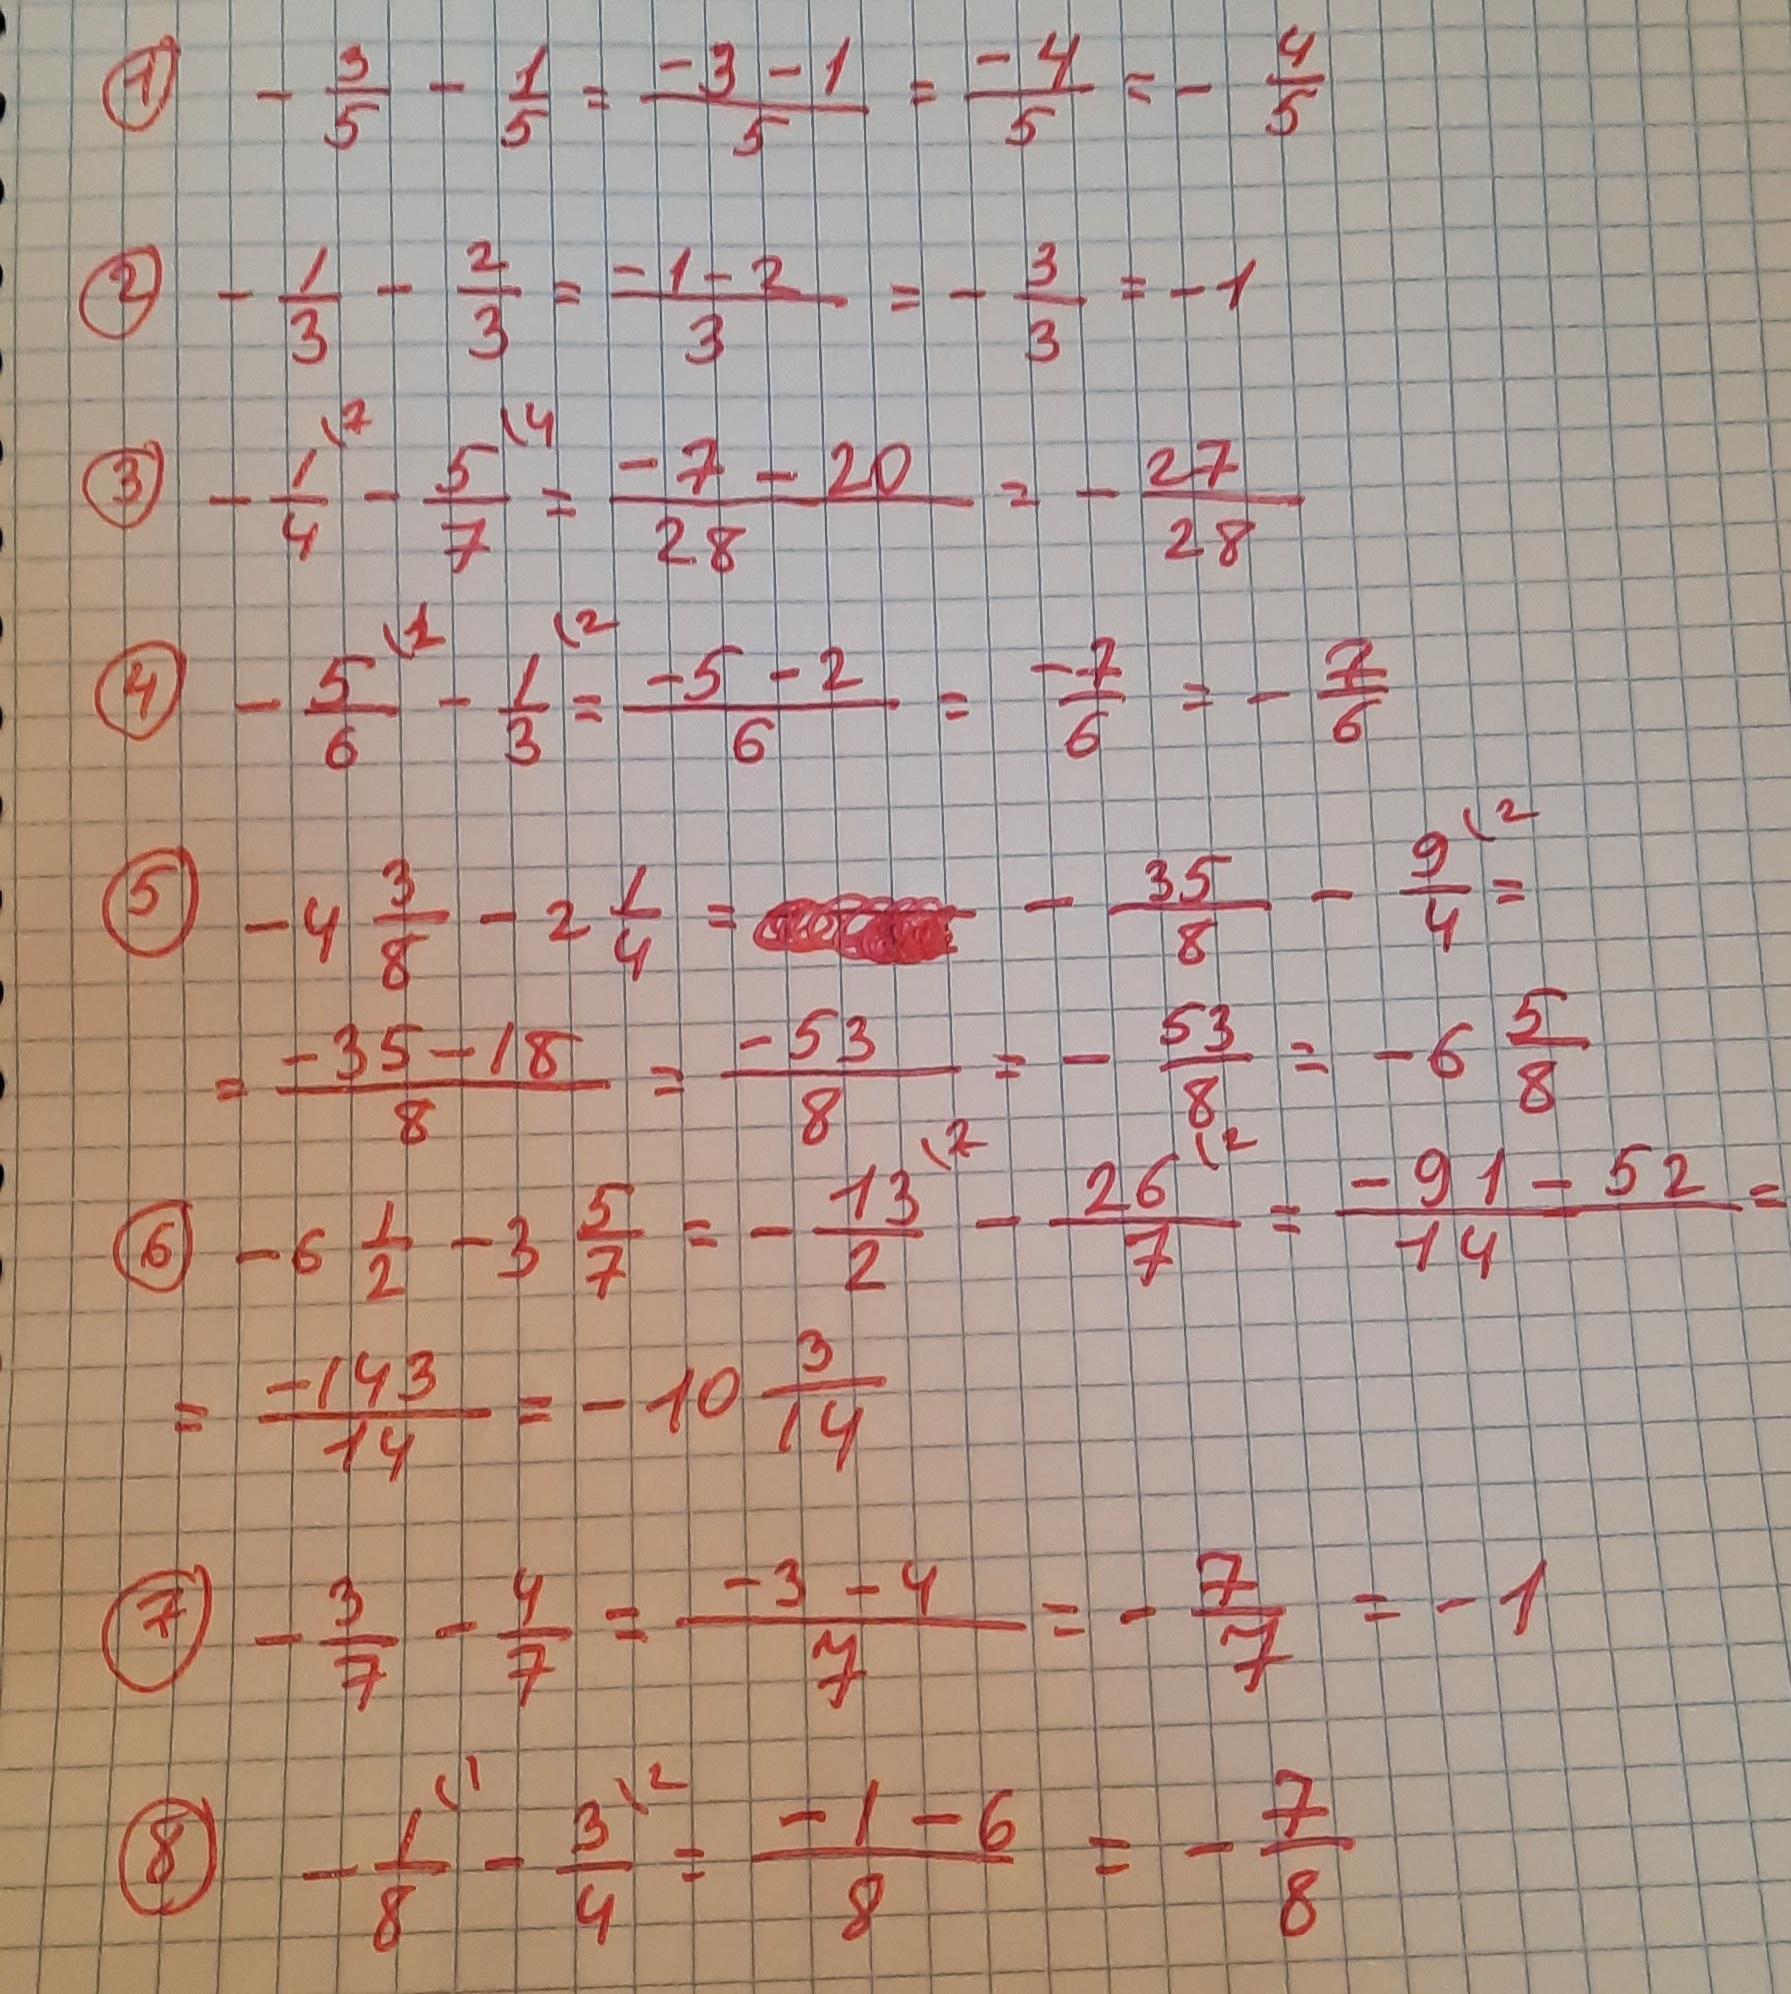 ① - 3/5 - 1/5 = (-3-1)/5 = -4/5 = - 4/5
② - 1/3 - 2/3 = (-1-2)/3 = - 3/3 = -1
③ - 1/4 (7 - 5/7 (4 = (-7-20)/28 = - 27/28
④ - 5/6 (1 - 1/3 (2 = (-5-2)/6 = -7/6 = - 7/6
⑤ -4 3/8 - 2 1/4 = - 35/8 - 9/4 (2 =
= (-35-18)/8 = -53/8 = - 53/8 = -6 5/8
⑥ -6 1/2 - 3 5/7 = - 13/2 (7 - 26/7 (2 = (-91-52)/14 =
= -143/14 = -10 3/14
⑦ - 3/7 - 4/7 = (-3-4)/7 = - 7/7 = -1
⑧ - 1/8 (1 - 3/4 (2 = (-1-6)/8 = - 7/8